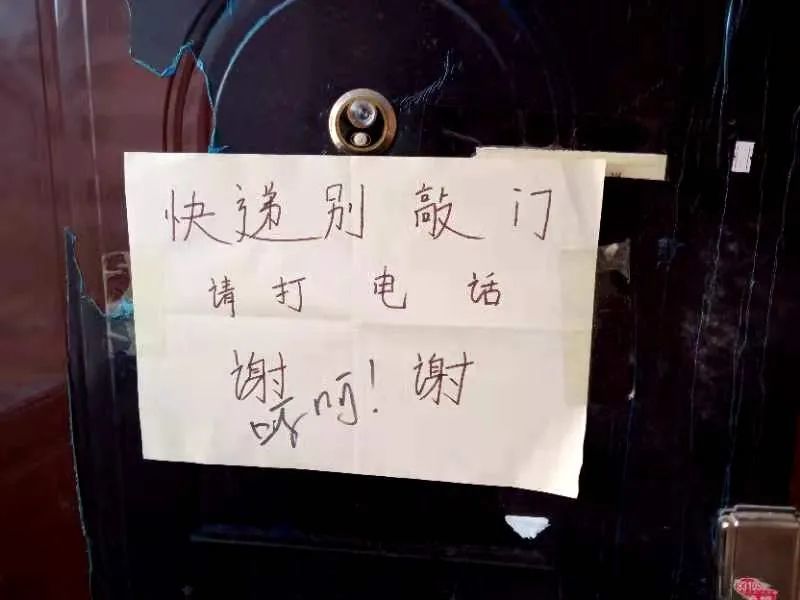 快递别敲门
请打电话
谢谢
哼呵!